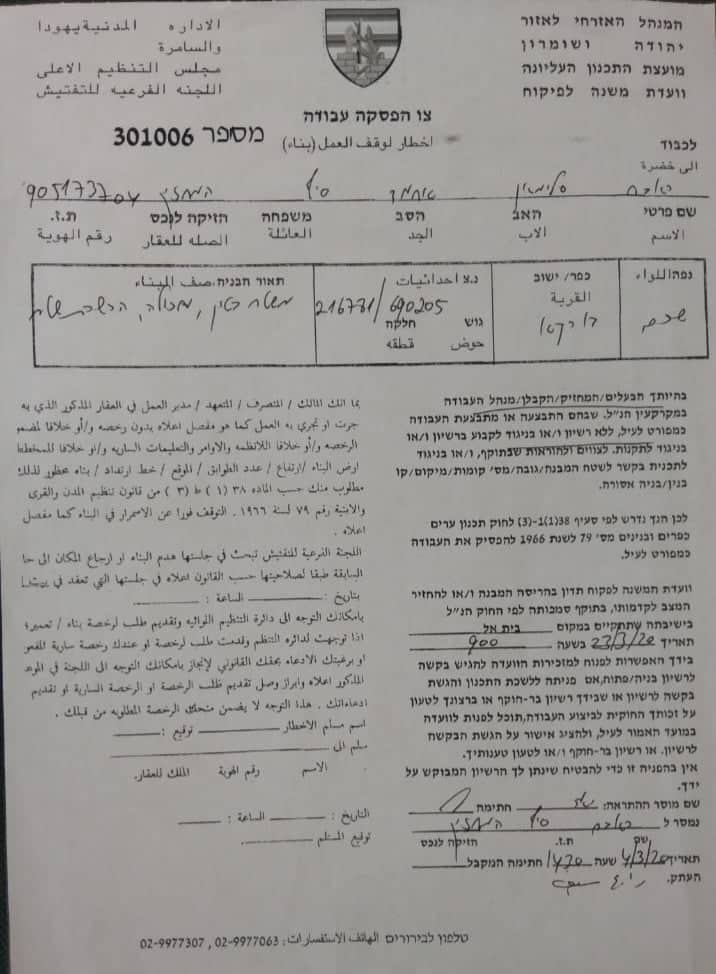 המנהל האזרחי לאזור
יהודה ושומרון
מועצת התכנון העליונה
וועדת משנה לפיקוח
الاداره المدنية يهودا
والسامرة
مجلس التنظيم الاعلى
اللجنه الفرعيه للتفتيش
צו הפסקה עבודה
اخطار لوقف العمل (بناء)
מספר 301006
לכבוד
الى حضرة
סלימאן
המחזיק
שם פרטי האב הסב משפחה הזיקה לנכס ת.ז.
الاسم الاب الجد العائلة الصله للعقار رقم الهوية
נפה/اللواء
שכם
כפר/ ישוב
القرية
נ.צ احداثيات
216771/690205
גוש חלקה
حوض قطقه
תאור הבניה/وصف البناء
משטח בטון, מכולה,
בהיותך הבעלים/המחזיק/הקבלן/מנהל העבודה
במקרקעין הנ"ל. שבהם התבצעה או מתבצעת העבודה
כמפורט לעיל, ללא רשיון ו/או בניגוד לקבוע ברשיון ו/או
בניגוד לתקנות. לצווים ולהוראות שבתוקף, ו/או בניגוד
לתכנית בקשר לשטח המבנה/גובה/מס' קומות/מיקום/קו
בנין/בניה אסורה.
לכן הנך נדרש לפי סעיף 38(1)-(3) לחוק תכנון ערים
כפרים ובנינים מס' 79 לשנת 1966 להפסיק את העבודה
כמפורט לעיל.
וועדת המשנה לפקוח תדון בהריסה המבנה ו/או להחזיר
המצב לקדמותו, בתוקף סמכותה לפי החוק הנ"ל
בישיבתה שתתקיים במקום בית אל
תאריך 23/3/20 בשעה 900
בידך האפשרות לפנות למזכירות הוועדה להגיש בקשה
לרשיון בניה/פתוח, אם פניתה ללשכת התכנון והגשת
בקשה לרשיון או שבידך רשיון בר-חוקף או ברצונך לטעון
על זכותך החוקית לביצוע העבודה, תוכל לפנות לוועדה
במועד האמור לעיל, ולהציג אישור על הגשת הבקשה
לרשיון. או רשיון בר-חוקף ו/או לטעון טענותיך.
אין בהפניה זו כדי להבטיח שינתן לך הרשיון המבוקש על
ידך.
שם מוסר ההתראה: חתימה
נמסר ל המחזיק
שם ת.ז. הזיקה לנכס
תאריך 4/3/20 שעה חתימה המקבל
העתק.
بما انك المالك / المتصرف / المتعهد / مدير العمل في العقار المذكور الذي به
جرت او تجري به العمل كما هو مفصل اعلاه بدون رخصه و/أو خلافا لمضمون
الرخصه و/أو خلافا للانظمه والاوامر والتعليمات الساريه و/او خلافا للمخطط
ارض البناء /ارتفاع / عدد الطوابق / الموقع / خط ارتداد / بناء محظور لذلك
مطلوب منك حسب الماده ٣٨ (١) ط (٣) من قانون تنظيم المدن والقرى
والابنية رقم ٧٩ لسنة ١٩٦٦ . التوقف فورا عن الاسمرار في البناء كما مفصل
اعلاه .
اللجنة الفرعية للتفتيش تبحث في جلستها هدم البناء او ارجاع المكان الى حا
السابقة طبقا لصلاحيتها حسب القانون اعلاه في جلستها التي تعقد في
بتاريخ : الساعة :
بامكانك التوجه الى دائرة التنظيم اللوائيه وتقديم طلب لرخصة بناء / تعمير؛
اذا توجهت لدائره التنظم وقدمت طلب لرخصة او عندك رخصة سارية المفعو
او برغبتك الادعاء بحقك القانوني لإنجاز بامكانك التوجه الى اللجنة في الموعد
المذكور اعلاه وابراز وصل تقديم طلب الرخصة او الرخصة السارية او تقديم
ادعاءاتك . هذا التوجه لا يضمن منحك الرخصة المطلوبه من قبلك .
اسم مسلم الاخطار توقيع :
سلم الى
الاسم رقم الهوية الملك للعقار.
التاريخ : الساعة :
توقيع المستلم
טלפון לבירורים الهاتف الاستفسارات: 02-9977063 , 02-9977307